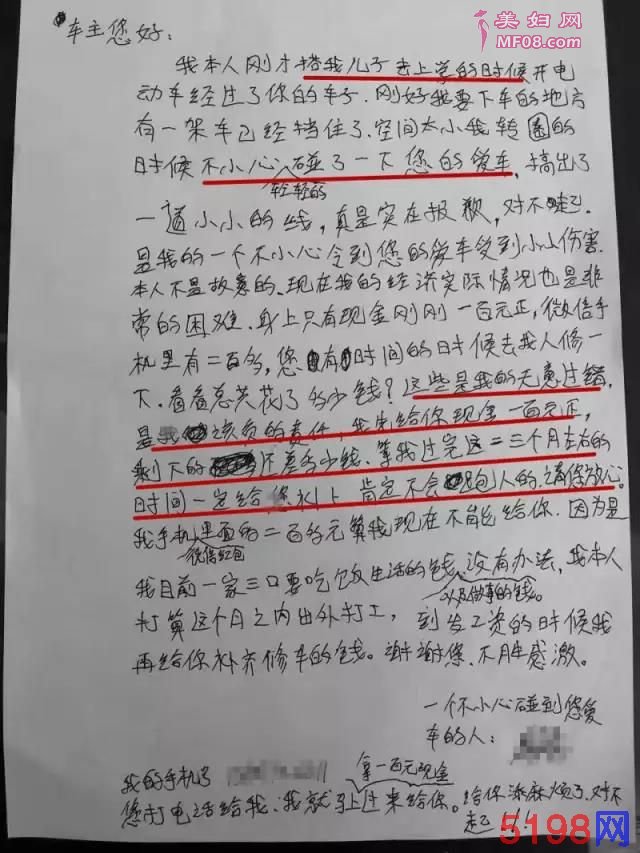 美妇网
MF08.com
车主您好:
我本人刚才搭我儿子去上学的时候开电
动车经过了你的车子.刚好我要下车的地方
有一架车已经挡住了.空间太小我转圈的
时候不小心碰了一下您的爱车,搞出了
轻轻的
一道小小的线,真是实在报歉,对不起.
是我的一个不小心令到您的爱车受到小小伤害.
本人不是故意的.现在我的经济实际情况也是非
常的困难.身上只有现金刚刚一百元正,微信手
机里有二百多,您有时间的时候去找人修一
下.看看总共花了多少钱?这些是我的无意过错,
是我该负的责任,我先给你现金一百元正,
剩下的还差多少钱.等我过完这二三个月左右的
时间一定给您补上肯定不会跑人的.请您放心.
我手机里面的二百多元算我现在不能给你.因为是
微信红包
我目前一家三口要吃饭生活的钱,没有办法,我本人
以及做事的钱。
打算这个月之内出外打工,到发工资的时候我
再给你补齐修车的钱。谢谢您.不胜感激。
一个不小心碰到您爱
车的人:
我的手机号
拿一百元现金
您打电话给我.我就马上过来给你。给你添麻烦了.对不
起!!!
5198网